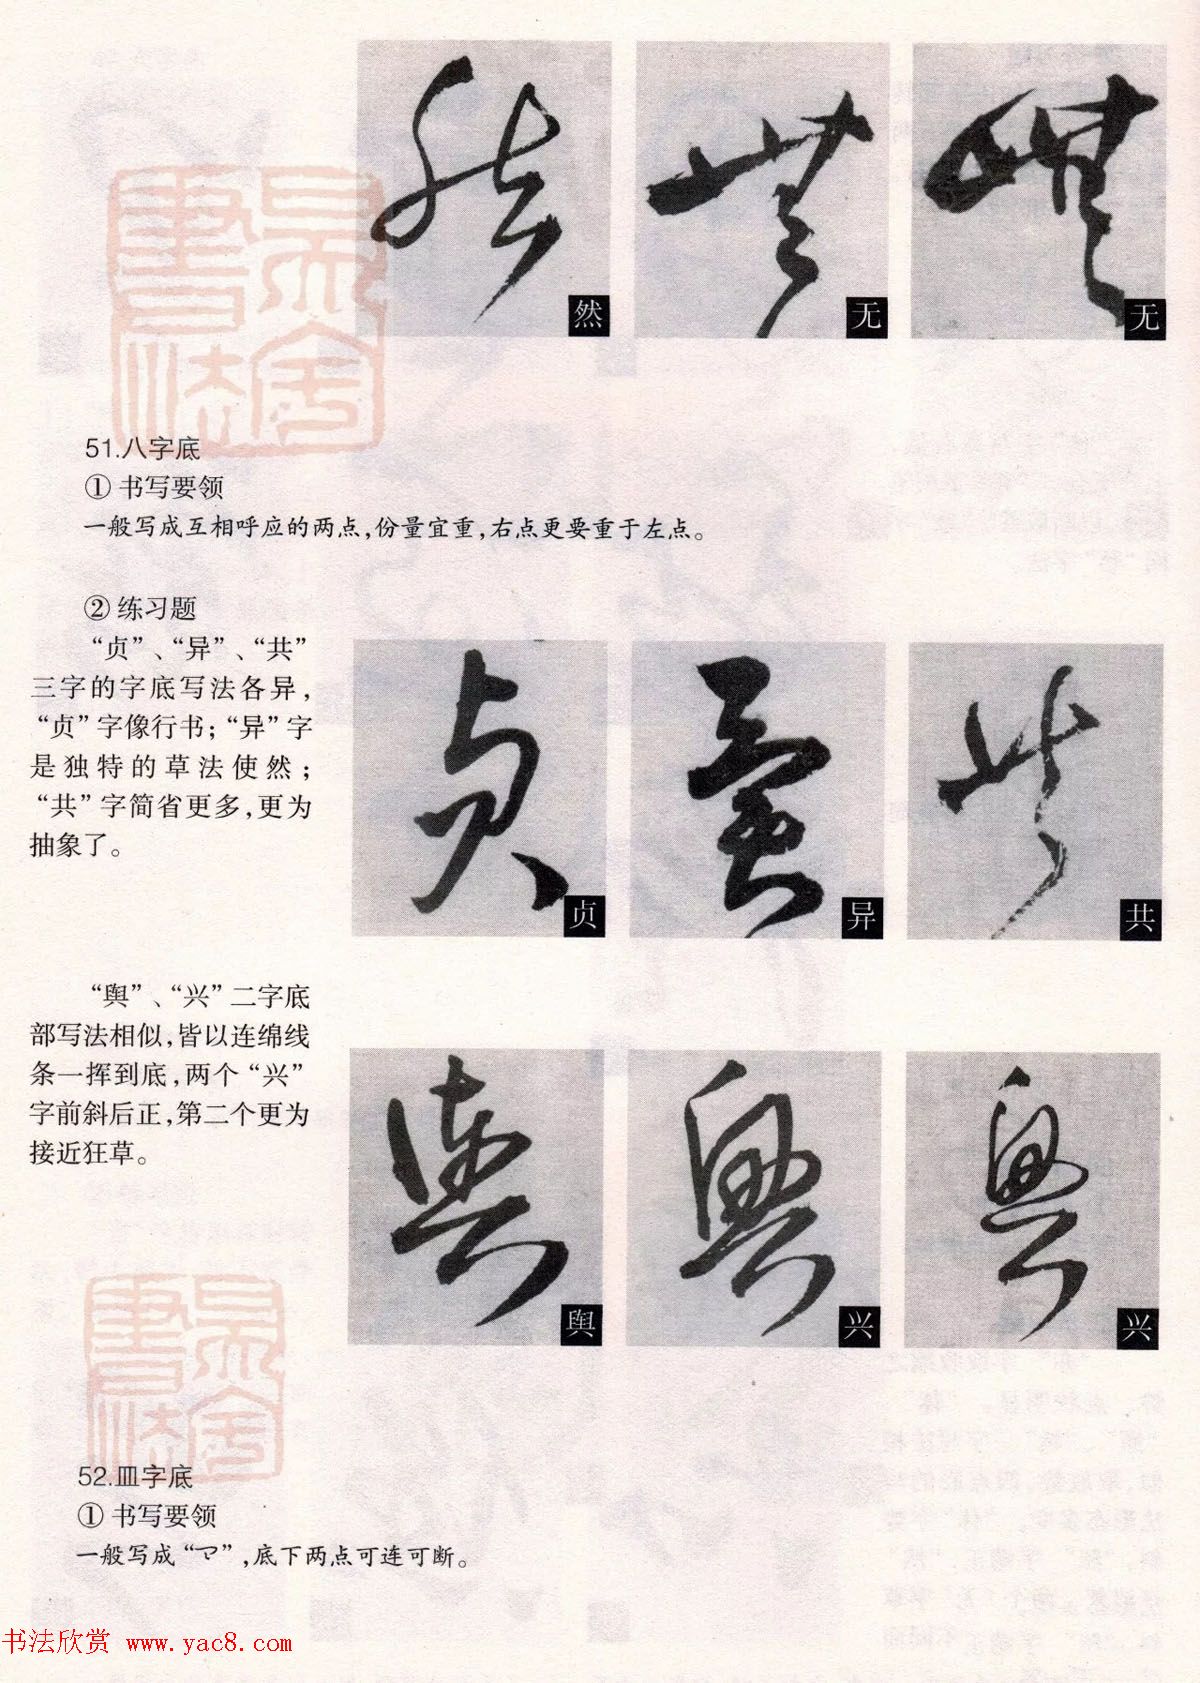 然 无 无
51.八字底
① 书写要领
一般写成互相呼应的两点,份量宜重,右点更要重于左点。
② 练习题
“贞”、“异”、“共”
三字的字底写法各异,
“贞”字像行书;“异”字
是独特的草法使然;
“共”字简省更多,更为
抽象了。
贞 异 共
“舆”、“兴”二字底
部写法相似,皆以连绵线
条一挥到底,两个“兴”
字前斜后正,第二个更为
接近狂草。
舆 兴 兴
52.皿字底
① 书写要领
一般写成“”,底下两点可连可断。
书法欣赏 www.yac8.com